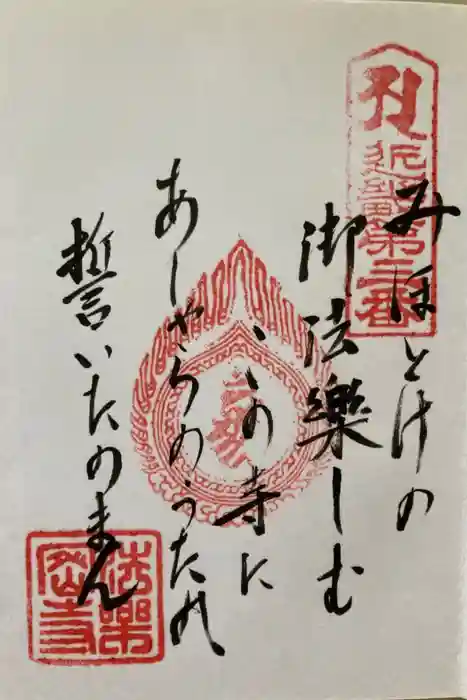 近畿第三番
みほとけの
御法樂しむ
この寺に
あしやらのうたれ
誓いたのまん
法樂
寺